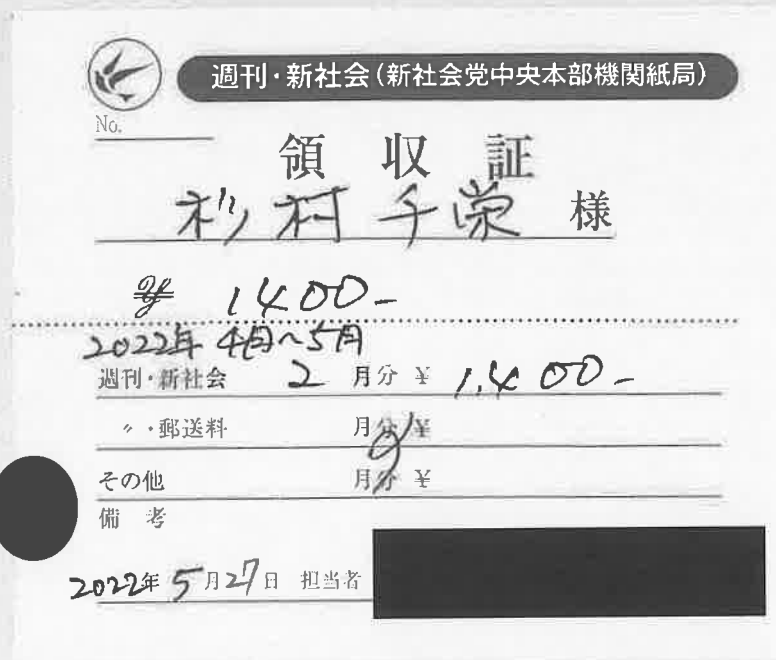 週刊・新社会(新社会党中央本部機関紙局)
No.
領収証
杉村千栄 様
¥ 1400-
2022年 4月~5月
週刊・新社会 2 月分 ¥ 1,400-
〃・郵送料 月分 ¥
その他 月分 ¥
備考
2022年 5月27日 担当者